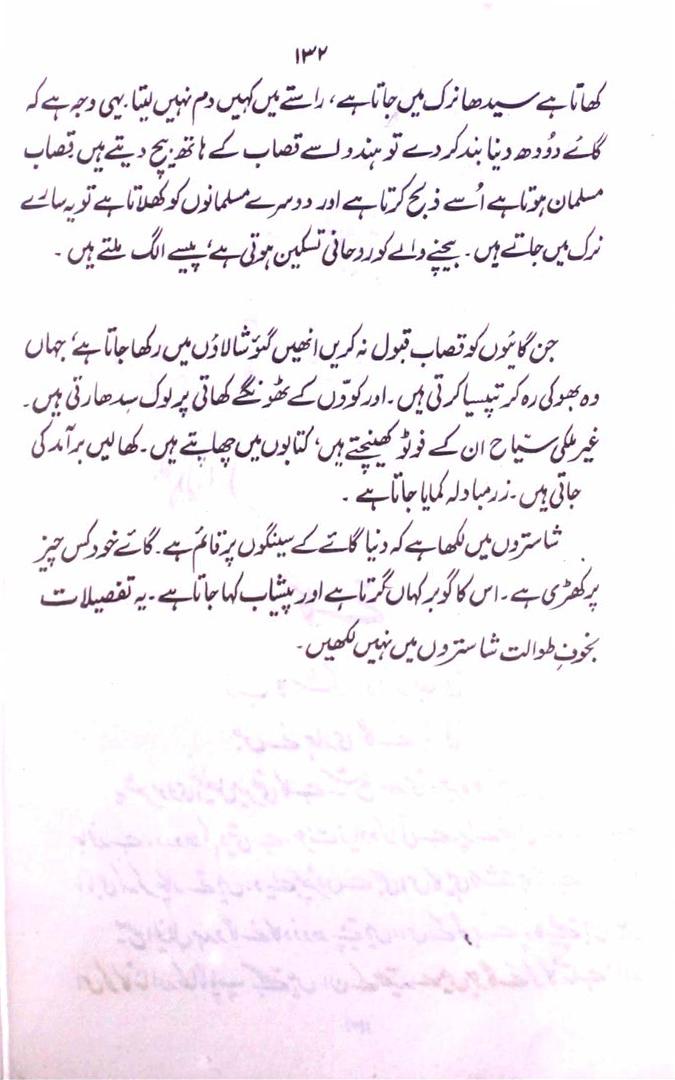 ۱۳۲
کھاتا ہے سیدھا نرک میں جاتا ہے، راستے میں کہیں دم نہیں لیتا۔ یہی وجہ ہے کہ
گائے دُودھ دینا بند کر دے تو ہندو اسے قصاب کے ہاتھ بیچ دیتے ہیں۔ قصاب
مسلمان ہوتا ہے اُسے ذبح کرتا ہے اور دوسرے مسلمانوں کو کھلاتا ہے تو یہ سارے
نرک میں جاتے ہیں۔ بیچنے والے کو روحانی تسکین ہوتی ہے، پیسے الگ ملتے ہیں۔
جن گائیوں کو قصاب قبول نہ کریں انھیں گئو شالاؤں میں رکھا جاتا ہے، جہاں
وہ بھوکی رہ کر تپسیا کرتی ہیں۔ اور کوّوں کے ٹھونگے کھاتی پرلوک سدھارتی ہیں۔
غیر ملکی سیّاح ان کے فوٹو کھینچتے ہیں، کتابوں میں چھاپتے ہیں۔ کھالیں برآمد کی
جاتی ہیں۔ زرمبادلہ کمایا جاتا ہے۔
شاستروں میں لکھا ہے کہ دنیا گائے کے سینگوں پر قائم ہے۔ گائے خود کس چیز
پر کھڑی ہے۔ اس کا گوبر کہاں گرتا ہے اور پیشاب کہا جاتا ہے۔ یہ تفصیلات
بخوفِ طوالت شاستروں میں نہیں لکھیں۔